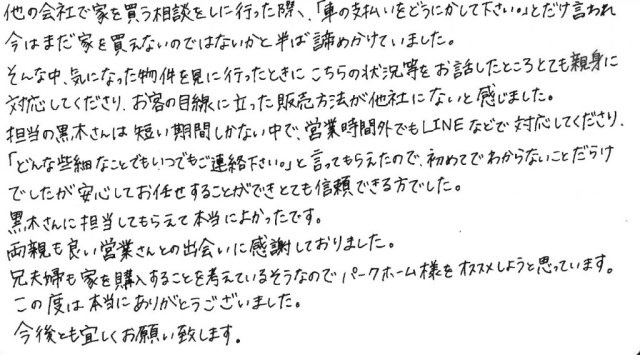 他の会社で家を買う相談をしに行った際、「車の支払いをどうにかして下さい。」とだけ言われ
今はまだ家を買えないのではないかと半ば諦めかけていました。
そんな中、気になった物件を見に行ったときにこちらの状況等をお話したところとても親身に
対応してくださり、お客の目線に立った販売方法が他社にないと感じました。
担当の黒木さんは短い期間しかない中で、営業時間外でもLINEなどで対応してくださり、
「どんな些細なことでもいつでもご連絡下さい。」と言ってもらえたので、初めてでわからないことだらけ
でしたが安心してお任せすることができとても信頼できる方でした。
黒木さんに担当してもらえて本当によかったです。
両親も良い営業さんとの出会いに感謝しておりました。
兄夫婦も家を購入することを考えているそうなのでパークホーム様をオススメしようと思っています。
この度は本当にありがとうございました。
今後とも宜しくお願い致します。